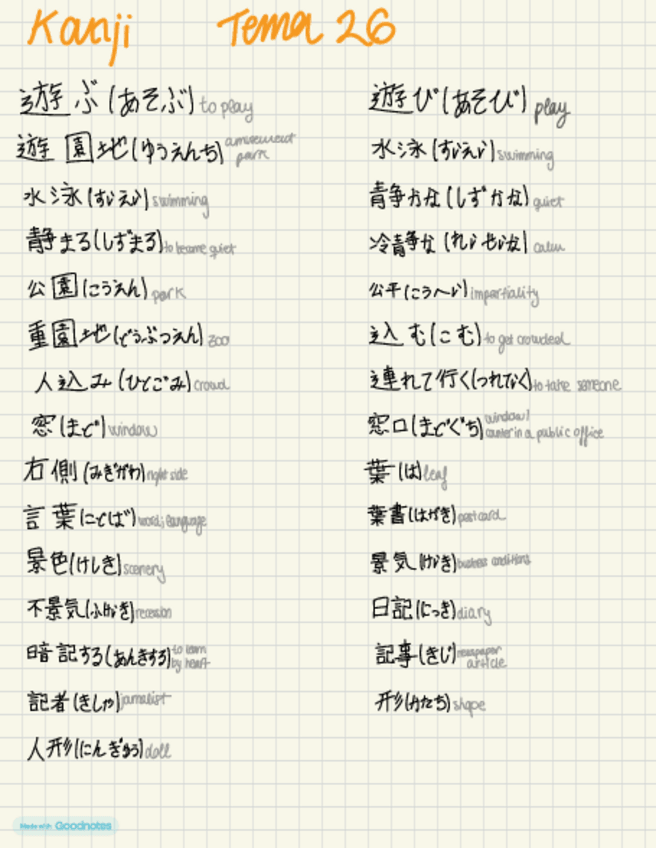 Kanji Tema 26
遊ぶ(あそぶ) to play
遊び(あそび) play
遊園地(ゆうえんち) amusement park
水泳(すいえい) swimming
水泳(すいえい) swimming
静かな(しずかな) quiet
静まる(しずまる) to become quiet
冷静な(れいせいな) calm
公園(こうえん) park
公平(こうへい) impartiality
重園地(どうぶつえん) zoo
込む(こむ) to get crowded
人込み(ひとごみ) crowd
連れて行く(つれていく) to take someone
窓(まど) window
窓口(まどぐち) window/ counter in a public office
右側(みぎがわ) right side
葉(は) leaf
言葉(ことば) word; language
葉書(はがき) postcard
景色(けしき) scenery
景気(けいき) business conditions
不景気(ふけいき) recession
日記(にっき) diary
暗記する(あんきする) to learn by heart
記事(きじ) newspaper article
記者(きしゃ) jornalist
形(かたち) shape
人形(にんぎょう) doll
Made with Goodnotes